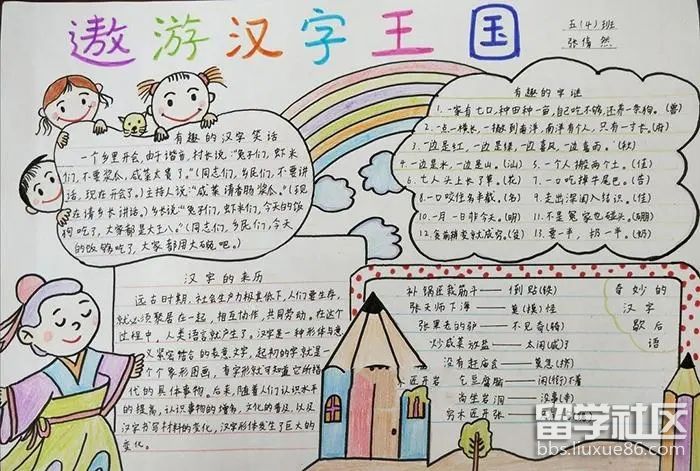 遨游汉字王国
五(4)班
张倩然
有趣的汉字笑话
一个乡里开会,由于谐音,村长说:"兔子们,虾米
们,不要浆瓜,咸菜太贵了。"(同志们,乡民们,不要讲
话,现在开会了。)主持人说:"咸菜请香肠浆瓜。"(现
在请乡长讲话。)乡长说:"兔子们,虾米们,今天的饭
狗吃了,大家都是大王八。"(同志们,乡民们,今天
的饭够吃了,大家都用大碗吧。)
有趣的字谜
1.一家有七口,种田种一亩,自己吃不够,还养一条狗。(兽)
2.一点一横长,一撇到南洋,南洋有个人,只有一寸长。(府)
3.一边是红,一边是绿,一边喜风,一边喜雨。(秋)
4.一边是水,一边是山。(汕)
5.一个人搬两个土。(佳)
6.七人头上长了草。(花)
7.一口吃掉牛尾巴。(告)
8.一口咬住多半截。(名)
9.走出深闺人结识。(佳)
10.一月一日非今天。(明)
11.不是冤家也碰头。(硼)
13.要一半,扔一半。(奶)
汉字的来历
远古时期,社会生产力极其低下,人们要生存,
就必须聚居在一起,相互协作,共同劳动。在这个
过程中,人类语言就产生了。汉字是一种形体与意
义紧密结合的表意文字,起初的字就是一
个个象形图画,看字形就可知道它所指
代的具体事物。后来,随着人们认识水平
的提高,认识事物的增多,文化的普及,以及
汉字书写材料的变化,汉字形体发生了巨大的
变化。
奇妙的
汉字
歇后
语
补锅匠栽筋斗——倒贴(铁)
张天师下海——莫(摸)怪
张果老的驴——不见奇(骑)
炒咸菜放盐——太闲(咸)了
没有赶庙会——莫急(挤)
乞豆腐脑——闲(衔)不着
尚坐岩洞——没事(寺)
穷木匠开张——
留学社区
bbs.liuxue86.com